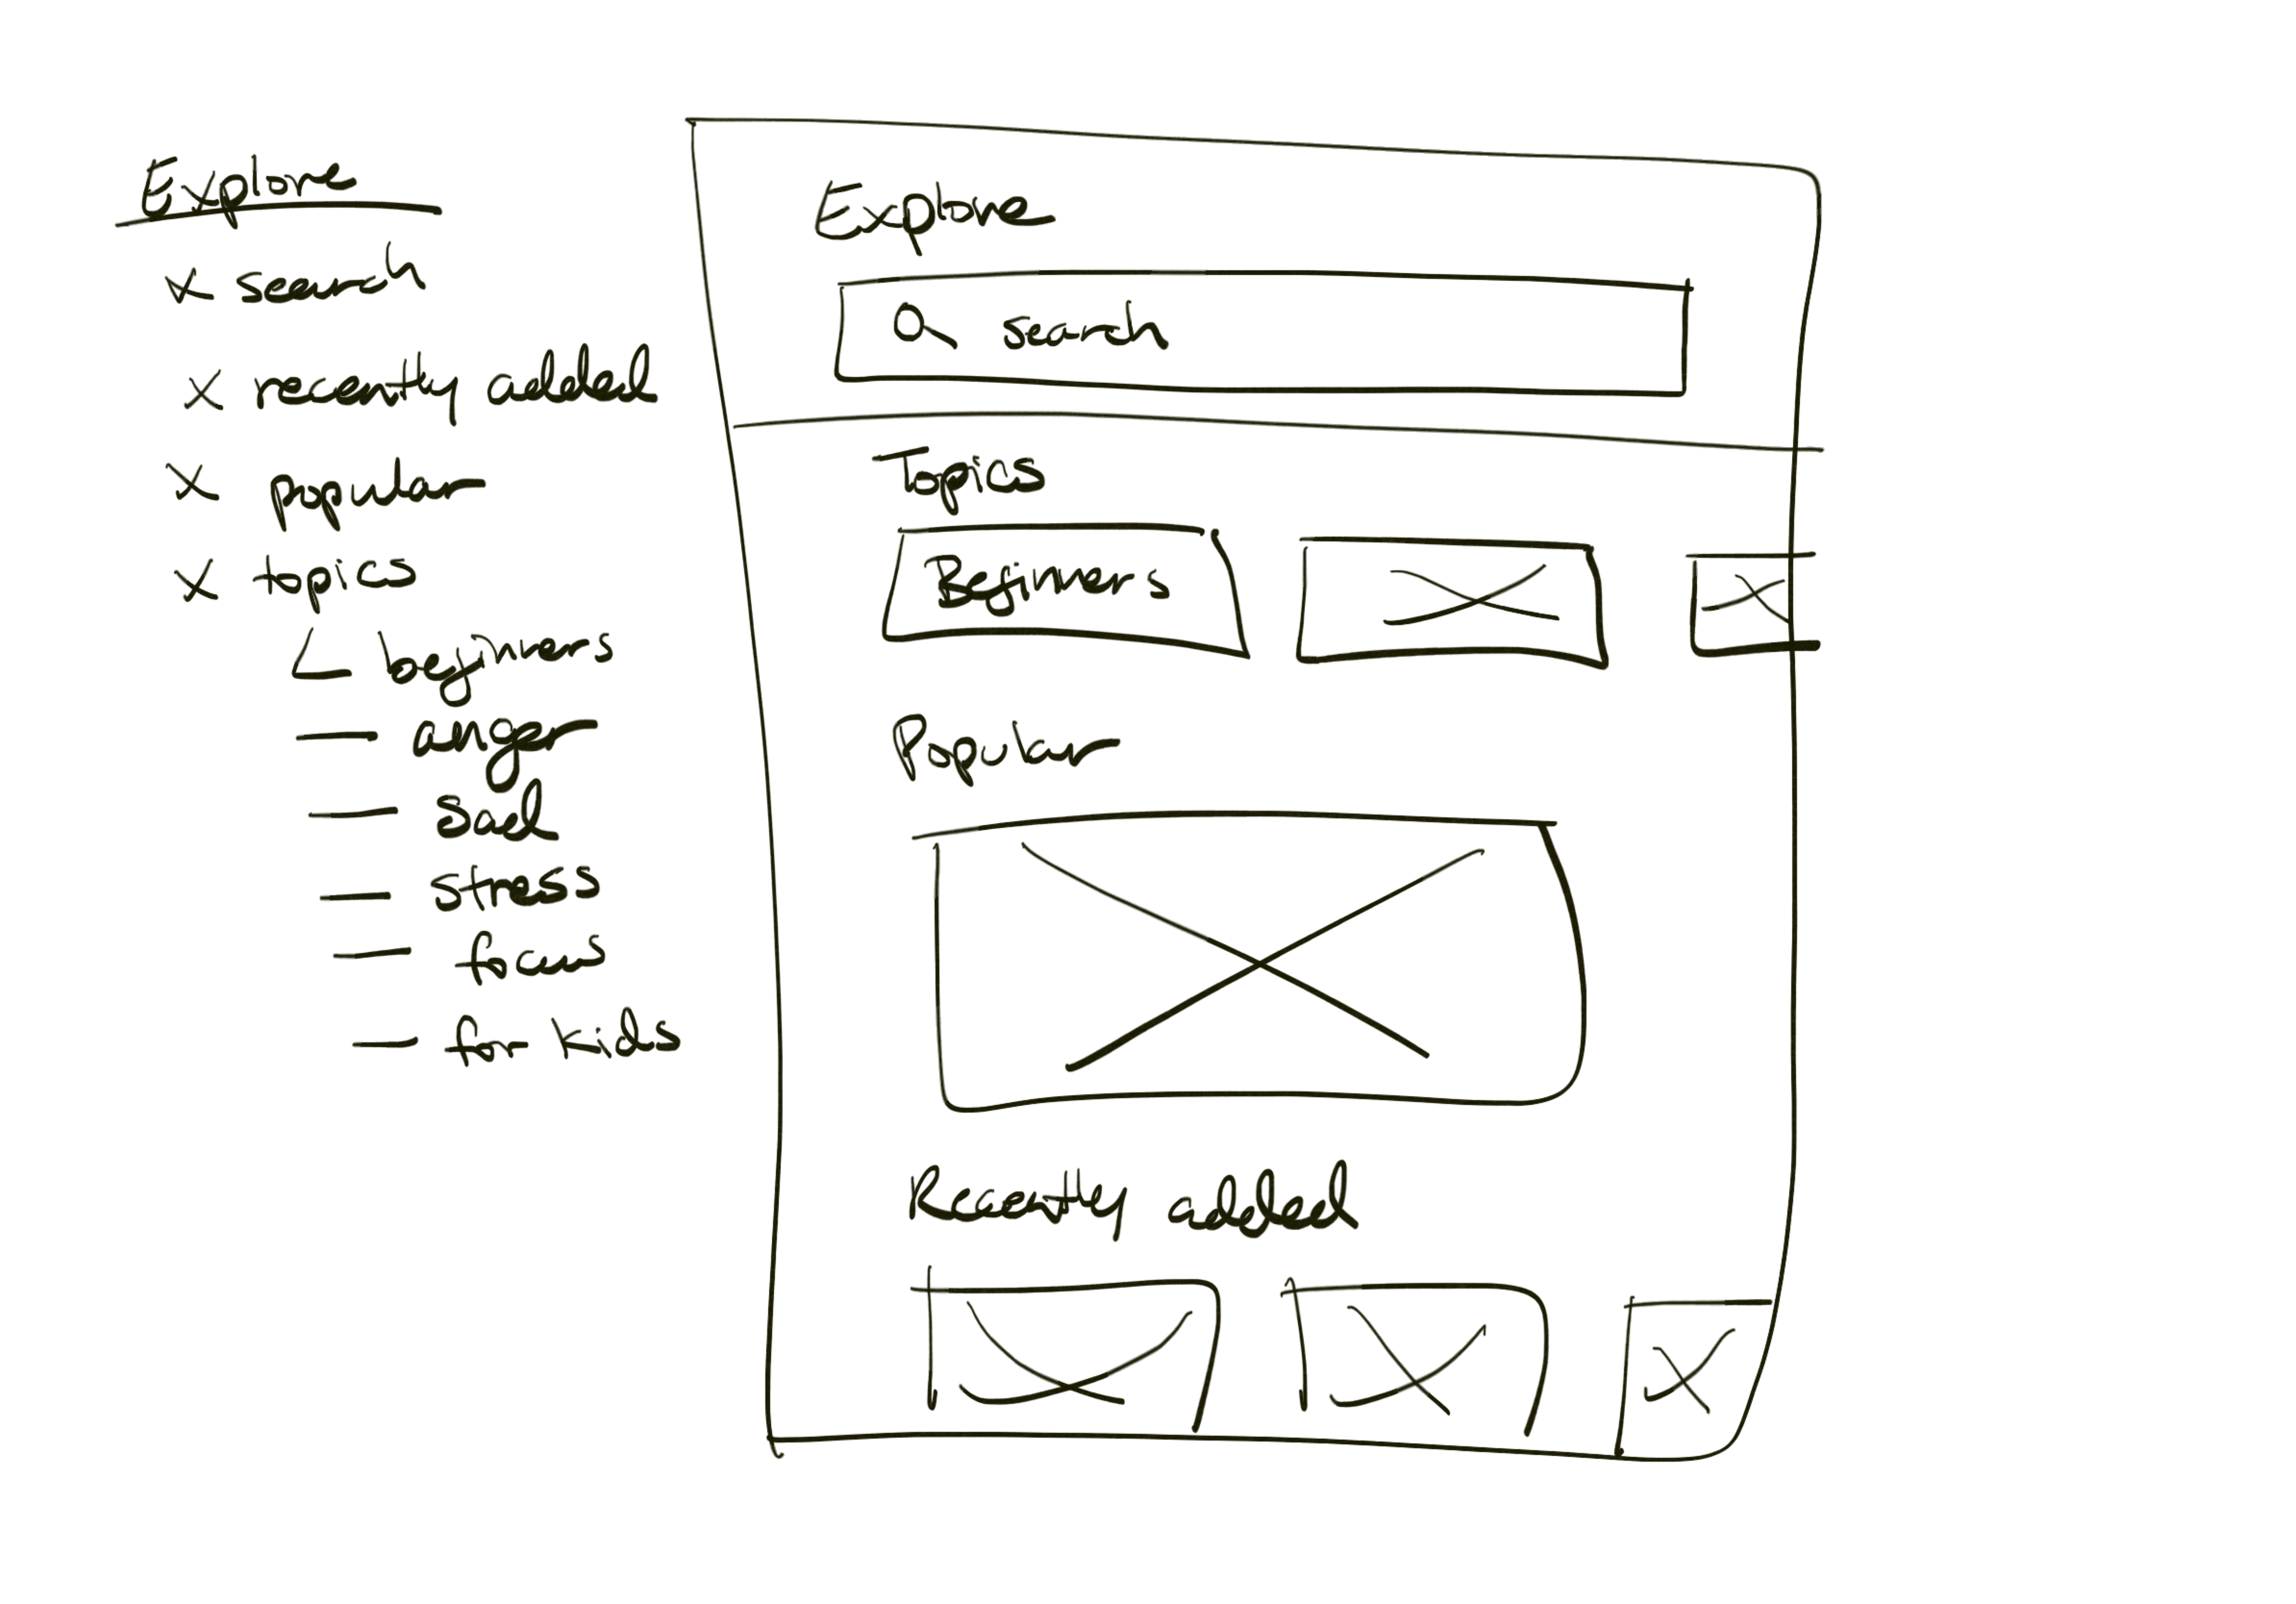 Explore
x search
x recently added
x popular
x topics
beginners
— anger
— sad
— stress
— focus
— for kids
Explore
search
Topics
Beginners
Popular
Recently added